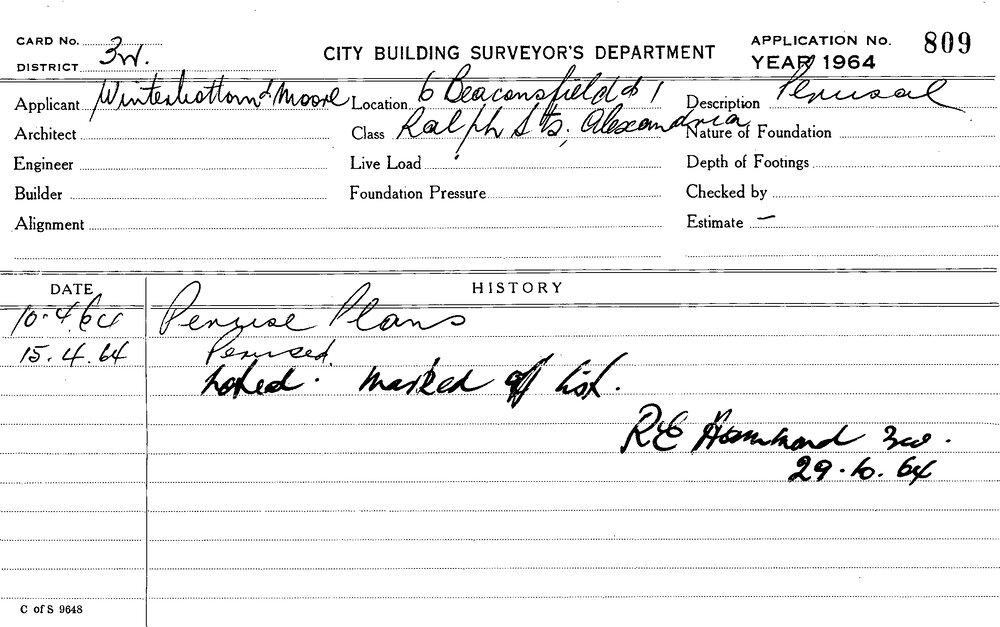 CARD No.
DISTRICT 3W.
CITY BUILDING SURVEYOR'S DEPARTMENT
APPLICATION No. 809
YEAR 1964
Applicant Winterbottom & Moore Location 6 Beaconsfield & 1 Description Perusal
Architect Class Ralph Sts, Alexandria Nature of Foundation
Engineer Live Load Depth of Footings
Builder Foundation Pressure Checked by
Alignment Estimate —
DATE HISTORY
10.4.64 Peruse Plans
15.4.64 Perused.
Noted. Marked off list.
RE Hammond 3W.
29.6.64
C of S 9648